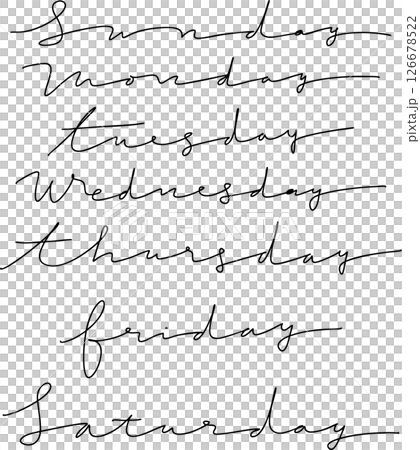 Sunday
monday
tuesday
Wednesday
thursday
friday
Saturday
PIXTA
126678522